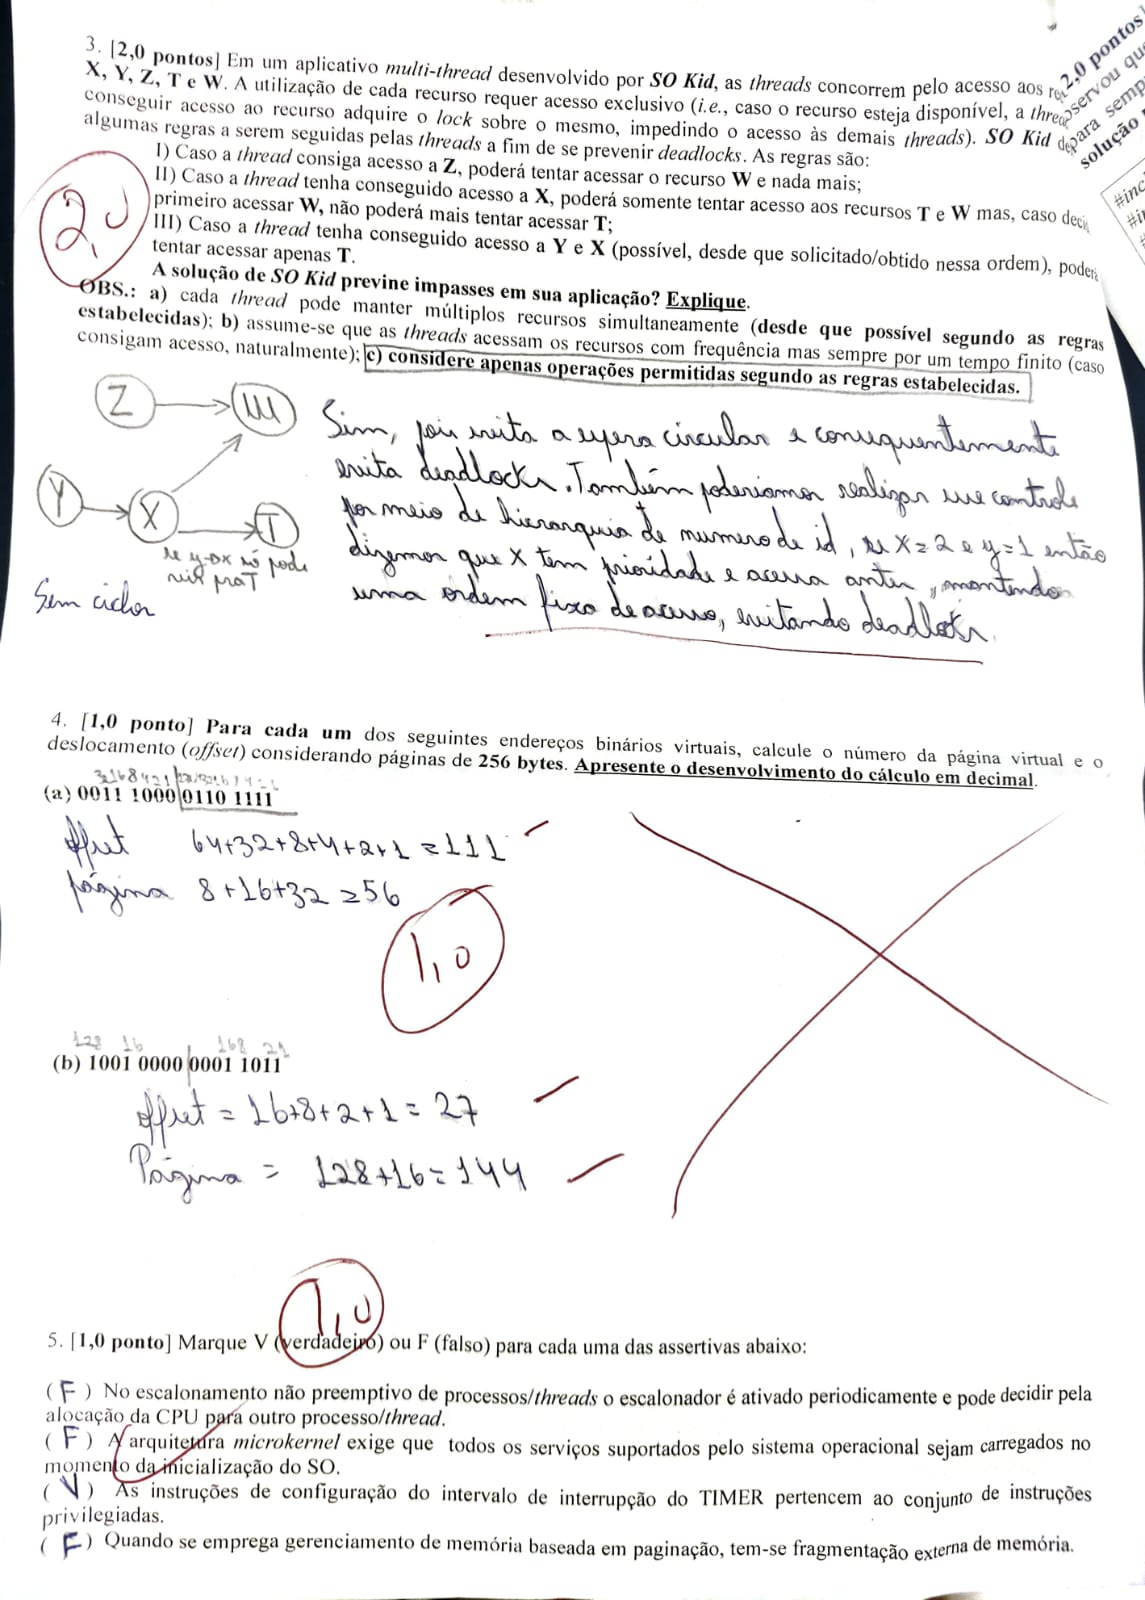 3. [2,0 pontos] Em um aplicativo multi-thread desenvolvido por SO Kid, as threads concorrem pelo acesso aos
X, Y, Z, T e W. A utilização de cada recurso requer acesso exclusivo (i.e., caso o recurso esteja disponível, a
conseguir acesso ao recurso adquire o lock sobre o mesmo, impedindo o acesso às demais threads). SO Kid
algumas regras a serem seguidas pelas threads a fim de se prevenir deadlocks. As regras são:
I) Caso a thread consiga acesso a Z, poderá tentar acessar o recurso W e nada mais;
II) Caso a thread tenha conseguido acesso a X, poderá somente tentar acesso aos recursos T e W mas, caso
primeiro acessar W, não poderá mais tentar acessar T;
III) Caso a thread tenha conseguido acesso a Y e X (possível, desde que solicitado/obtido nessa ordem), poderá
tentar acessar apenas T.
A solução de SO Kid previne impasses em sua aplicação? Explique.
OBS.: a) cada thread pode manter múltiplos recursos simultaneamente (desde que possível segundo as regras
estabelecidas); b) assume-se que as threads acessam os recursos com frequência mas sempre por um tempo finito (caso
consigam acesso, naturalmente); c) considere apenas operações permitidas segundo as regras estabelecidas.
2,0
2,0 pontos]
solução
#inc
Z W
Y X T
se y->x só pode
Sem ciclos
Sim, pois evita a espera circular e consequentemente
evita deadlocks. Também poderiamos realizar um controle
por meio de hierarquia de numero de id, se X=2 e y=1 então
dizemos que X tem prioridade e acessa antes, mantendo
uma ordem fixa de acesso, evitando deadlocks.
4. [1,0 ponto] Para cada um dos seguintes endereços binários virtuais, calcule o número da página virtual e o
deslocamento (offset) considerando páginas de 256 bytes. Apresente o desenvolvimento do cálculo em decimal.
(a) 0011 1000 0110 1111
offset 64+32+8+4+2+1 = 111
página 8+16+32 = 56
1,0
128 16 168 21
(b) 1001 0000 0001 1011
offset = 16+8+2+1 = 27
Página = 128+16 = 144
1,0
5. [1,0 ponto] Marque V (verdadeiro) ou F (falso) para cada uma das assertivas abaixo:
(F) No escalonamento não preemptivo de processos/threads o escalonador é ativado periodicamente e pode decidir pela
alocação da CPU para outro processo/thread.
(F) A arquitetura microkernel exige que todos os serviços suportados pelo sistema operacional sejam carregados no
momento da inicialização do SO.
(V) As instruções de configuração do intervalo de interrupção do TIMER pertencem ao conjunto de instruções
privilegiadas.
(F) Quando se emprega gerenciamento de memória baseada em paginação, tem-se fragmentação externa de memória.